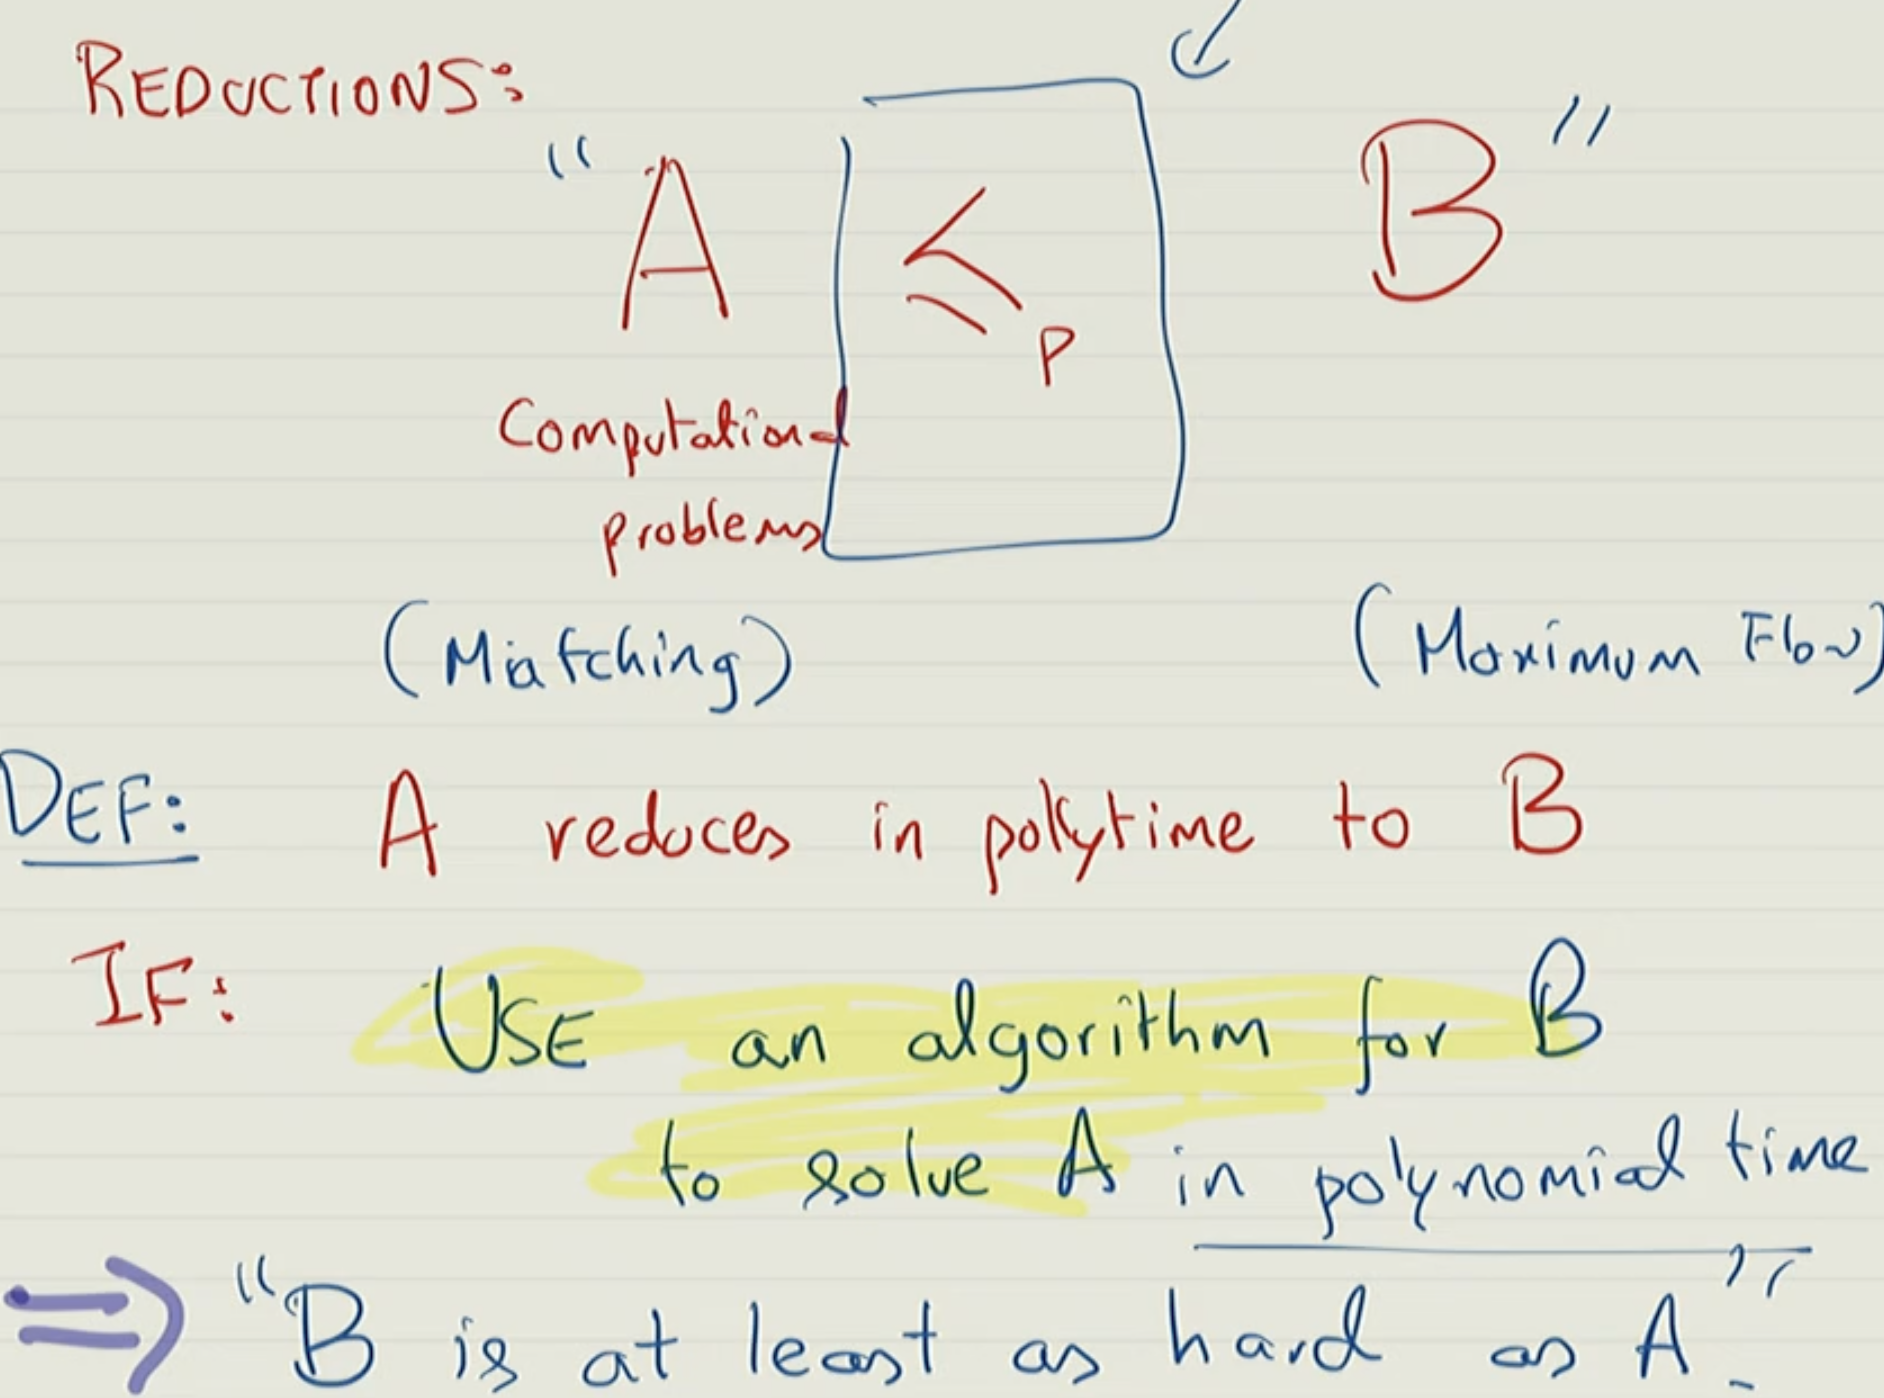 REDUCTIONS:
"A ≤p B"
Computational
problems
(Matching) (Maximum Flow)
DEF: A reduces in polytime to B
IF: USE an algorithm for B
to solve A in polynomial time
⇒ "B is at least as hard as A".